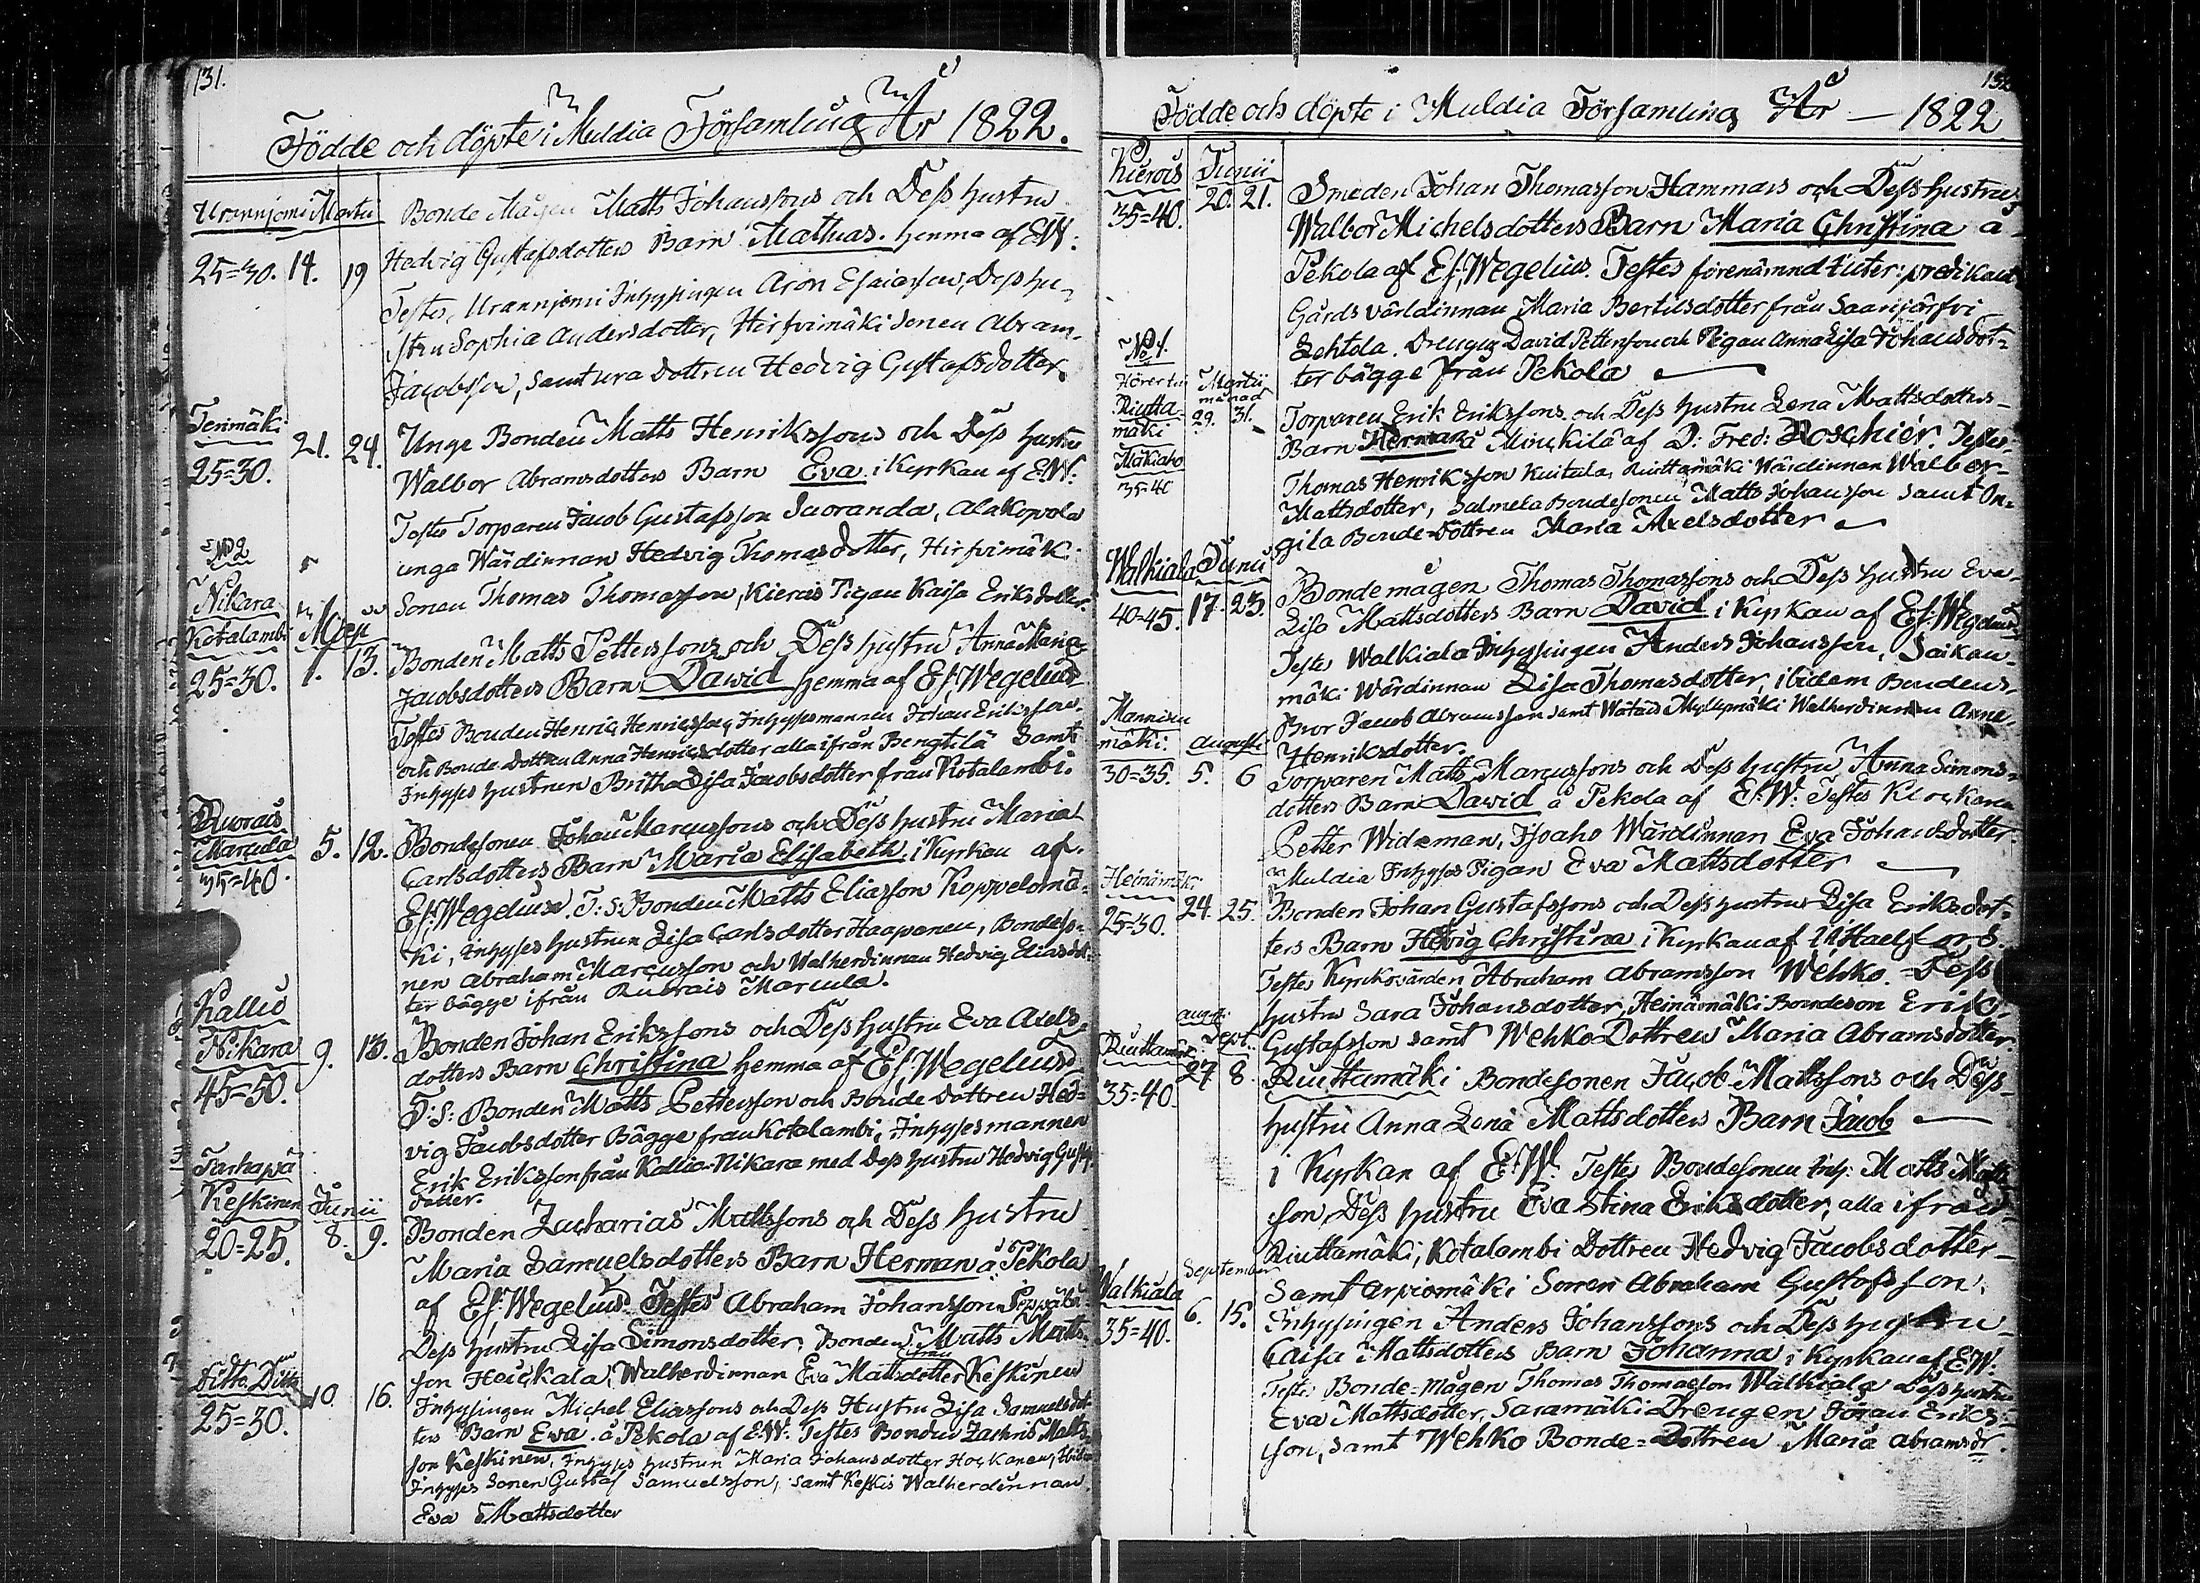 131.
Födde och döpte i Muldia Församling År 1822.
Urannjemi Martii
25=30. 14. 19
Bonde Mågen Matts Johanssons och Dess hustru
Hedvig Gustafsdotters Barn Mathias. hemma af E.W:
Testes, Urannjemi Inhysingen Aron Esaiasson, Dess hu-
stru Sophia Andersdotter, Hirfvimäki Sonen Abram
Jacobsson, samt Dottren Hedvig Gustafsdotter.
Terimäki
25=30.
21. 24.
Unge Bonden Matts Henrikssons och Dess hustru
Walbor Abramsdotters Barn Eva i Kyrkan af E.W:
Testes Torparen Jacob Gustafsson Suoranda, Alakopola
unga Wärdinnan Hedvig Thomasdotter, Hirfvimäki
Sonen Thomas Thomasson, Kierois Pigan Kaisa Eriksdotter.
No 2
Nikara
Kotalambi
25=30. 1. 13.
Bonden Matts Petterssons och Dess hustru Anna Maria
Jacobsdotters Barn David hemma af Es: Wegelius
Testes Bonden Henric Henricsson, Inhysesmannen Johan Eriksson
och Bonde Dottren Anna Henricsdotter alla ifrån Bengtilä Samt
Inhyses hustrun Britha Lisa Jacobsdotter från Kotalambi.
Ruorais
Marcula
35=40.
5. 12.
Bondesonen Johan Marcussons och Dess hustru Maria
Carlsdotters Barn Maria Elisabeth i Kyrkan af
Es: Wegelius. T: S: Bonden Matts Eliasson Koppelomä-
ki, Inhyses hustrun Lisa Carlsdotter Haapanen, Bondeso-
nen Abraham Marcusson och Walherdinnan Hedvig Eliasdot-
ter bägge ifrån Ruorais Marcula.
Kallio
Nikara
45=50.
9. 13.
Bonden Johan Erikssons och Dess hustru Eva Axels
dotters Barn Christina hemma af Es: Wegelius
T: S: Bonden Matts Pettersson och Bonde Dottren Hed-
vig Jacobsdotter Bägge från Kotalambi, Inhysesmannen
Erik Eriksson från Kallio-Nikara med Dess hustru Hedvig Gustafs
dotter.
Tarhapä
Keskinen Junii
20=25. 8. 9.
Bonden Zacharias Mattssons och Dess hustru
Maria Samuelsdotters Barn Herman å Pekola
af Es: Wegelius. Testes Abraham Johansson
Dess hustru Lisa Simonsdotter, Bonden Matts Matts-
son Heickala, Walherdinnan Eva Mattsdotter från Keskinen
Ditto Ditto
25=30.
10. 16.
Inhysingen Michel Eliassons och Dess Hustru Lisa Samuelsdot-
ters Barn Eva å Pekola af E.W: Testes Bonden Zachris Matts-
son Keskinen, Inhyses hustrun Maria Johansdotter Hockanen,
Inhyses Sonen Gustaf Samuelsson, samt Keskis Walherdinnan
Eva Mattsdotter
132
Födde och döpte i Muldia Församling År — 1822
Kierois Junii
35=40. 20. 21.
Smeden Johan Thomasson Hammars och Dess hustrus
Walbor Michelsdotters Barn Maria Christina å
Pekola af Es: Wegelius. Testes förenämnd predikant
Gårds värdinnan Maria Bertilsdotter från Saarijärfvi
Lehtola. Drengen David Pettersson och Pigan Anna Lisa Johansdot-
ter bägge från Pekola
No 1.
Hörer til Martii
månad
Riutta-
mäki
29. 31.
Mäkiaho
35=40
Torparen Erik Erikssons och Dess hustru Lena Mattsdotters
Barn Herman å Minckilä af D: Fred: Roschier. Testes
Thomas Henriksson Kuitala, Riuttamäki Wärdinnan Walbor
Mattsdotter, Salmela Bondesonen Matts Johansson samt On-
gila Bonde-Dottren Maria Axelsdotter
Walkiala Junii
40=45. 17. 23.
Bondemågen Thomas Thomassons och Dess hustru Eva
Lisa Mattsdotters Barn David i Kyrkan af Es: Wegelius
Testes Walkiala Inhysingen Anders Johansson, Saikan-
mäki Wärdinnan Lisa Thomasdotter, ibidem Bondens
Bror Jacob Abramsson samt Myllymäki Walherdinnan Anna
Henriksdotter.
Mannisen
mäki. Augusti
30=35. 5. 6
Torparen Matts Marcussons och Dess hustru Anna Simons-
dotters Barn David å Pekola af E.W: Testes Klockaren
Petter Wideman, Isoaho Wärdinnan Eva Johansdotter
Muldia Inhyses Pigan Eva Mattsdotter
Heinämäki
25=30. 24. 25.
Bonden Johan Gustafssons och Dess hustrus Lisa Eriksdot-
ters Barn Hedvig Christina i Kyrkan af
Testes Kyrkovärden Abraham Abramsson Wehko. Dess
hustru Sara Johansdotter, Heinämäki Bondeson Eric
Gustafsson samt Wehko Dottren Maria Abramsdotter.
Aug: Sept.
Riuttamäki
35=40.
27. 8.
Riuttamäki Bondesonen Jacob Mattssons och Dess
hustru Anna Lena Mattsdotters Barn Jacob
i Kyrkan af E.W. Testes Bondesonen Matts Matts
son, Dess hustru Eva Stina Eriksdotter, alla ifrån
Riuttamäki, Kotalambi Dottren Hedvig Jacobsdotter
Samt Arpiomäki Sonen Abraham Gustafsson.
Walkiala September
35=40.
6. 15.
Inhysingen Anders Johanssons och Dess hustru
Caisa Mattsdotters Barn Johanna i Kyrkan af E.W.
Testes Bonde-mågen Thomas Thomasson Walkiala Dess hustru
Eva Mattsdotter, Saramäki Drengen Johan Eriks-
son, samt Wehko Bonde-Dottren Maria Abramsdr.